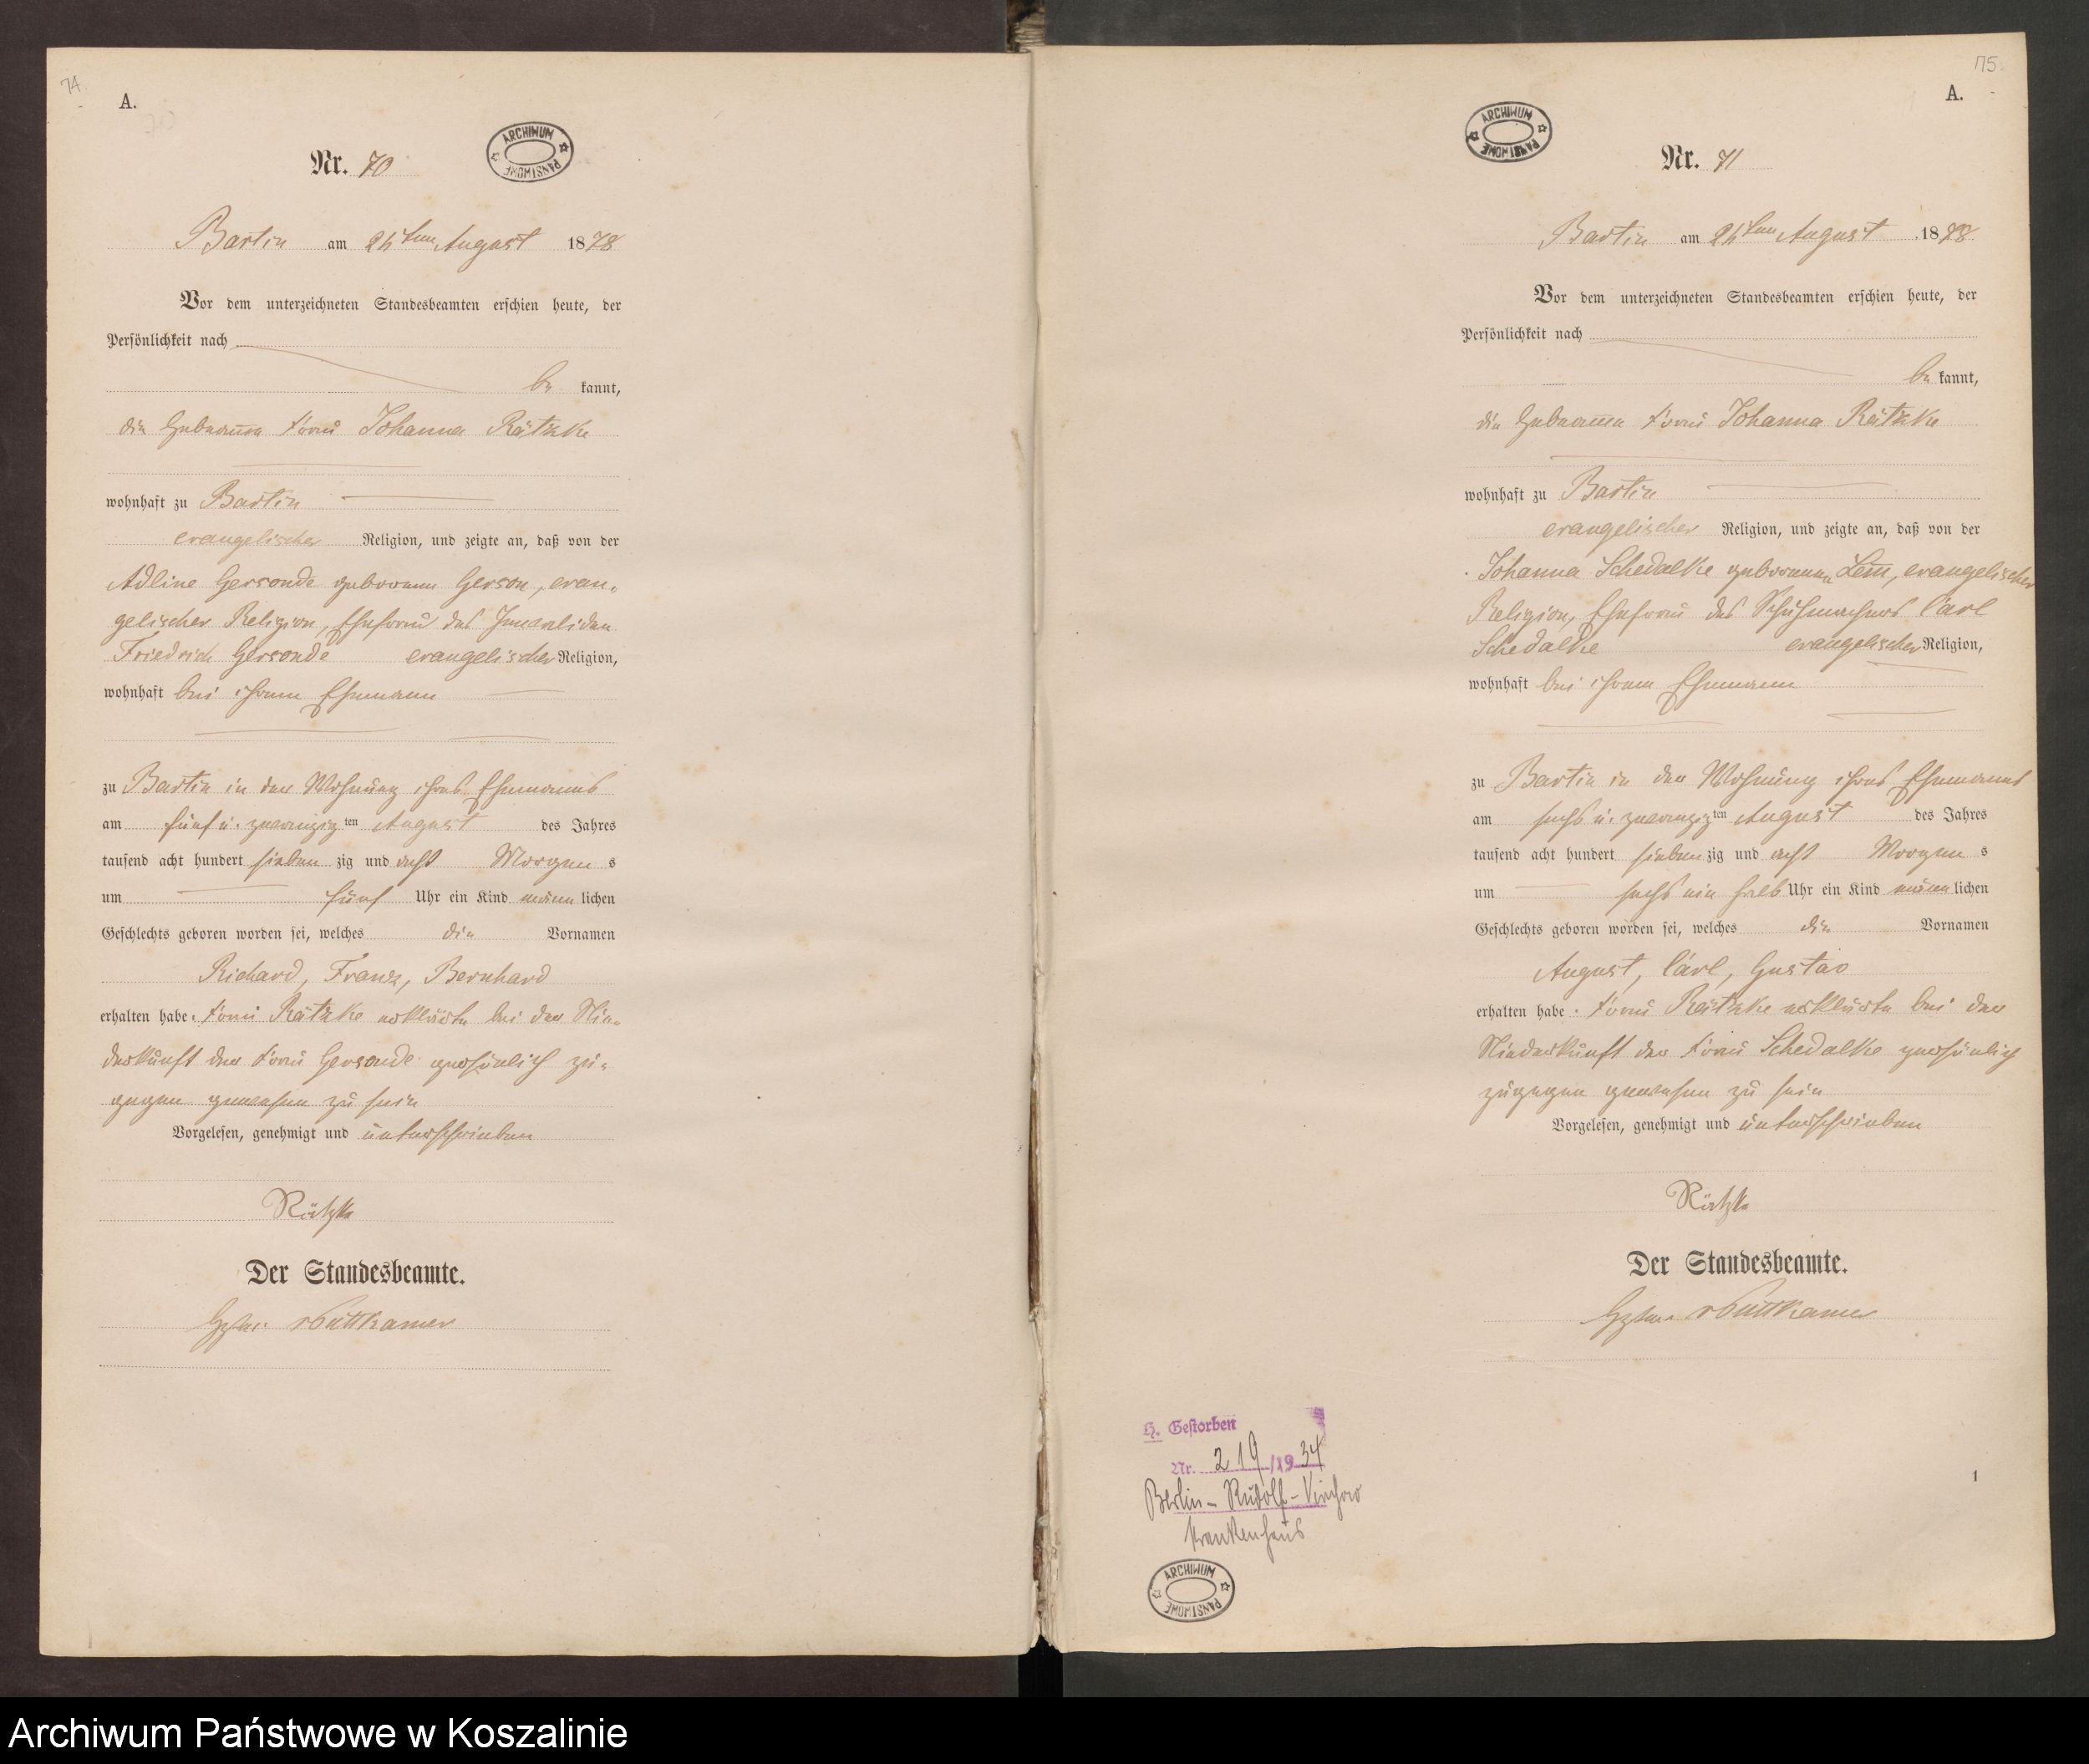 74.
A.
ARCHIWUM PAŃSTWOWE
Nr. 70
Bartin am ten August 1878
Vor dem unterzeichneten Standesbeamten erschien heute, der
Persönlichkeit nach
be kannt,
die Hebamme Frau Johanna Rätzke
wohnhaft zu Bartin
evangelischer Religion, und zeigte an, daß von der
Adline Gersonde geborenen Gerson, evan-
gelischer Religion, Ehefrau des Invaliden
Friedrich Gersonde evangelischer Religion,
wohnhaft bei ihrem Ehemann
zu Bartin in der Wohnung ihres Ehemanns
am fünf u. zwanzig ten August des Jahres
tausend acht hundert sieben zig und acht Morgen s
um fünf Uhr ein Kind männ lichen
Geschlechts geboren worden sei, welches die Vornamen
Richard, Franz, Bernhard
erhalten habe. Frau Rätzke erklärte bei der Nie-
derkunft der Frau Gersonde persönlich zu-
gegen gewesen zu sein
Vorgelesen, genehmigt und unterschrieben
Rätzke
Der Standesbeamte.
Puttkamer
75.
A.
ARCHIWUM PAŃSTWOWE
Nr. 71
Bartin am ten August 1878
Vor dem unterzeichneten Standesbeamten erschien heute, der
Persönlichkeit nach
be kannt,
die Hebamme Frau Johanna Rätzke
wohnhaft zu Bartin
evangelischer Religion, und zeigte an, daß von der
Johanna Schedalke geborenen Lem̄, evangelischer
Religion, Ehefrau des Schuhmachers Carl
Schedalke evangelischer Religion,
wohnhaft bei ihrem Ehemann
zu Bartin in der Wohnung ihres Ehemanns
am sechs u. zwanzig ten August des Jahres
tausend acht hundert sieben zig und acht Morgen s
um sechs ein halb Uhr ein Kind männ lichen
Geschlechts geboren worden sei, welches die Vornamen
August, Carl, Gustav
erhalten habe. Frau Rätzke erklärte bei der
Niederkunft der Frau Schedalke persönlich
zugegen gewesen zu sein
Vorgelesen, genehmigt und unterschrieben
Rätzke
Der Standesbeamte.
Puttkamer
H. Gestorben
Nr. 219/1934
Berlin-Rudolf-Virchow
Krankenhaus
ARCHIWUM PAŃSTWOWE
Archiwum Państwowe w Koszalinie